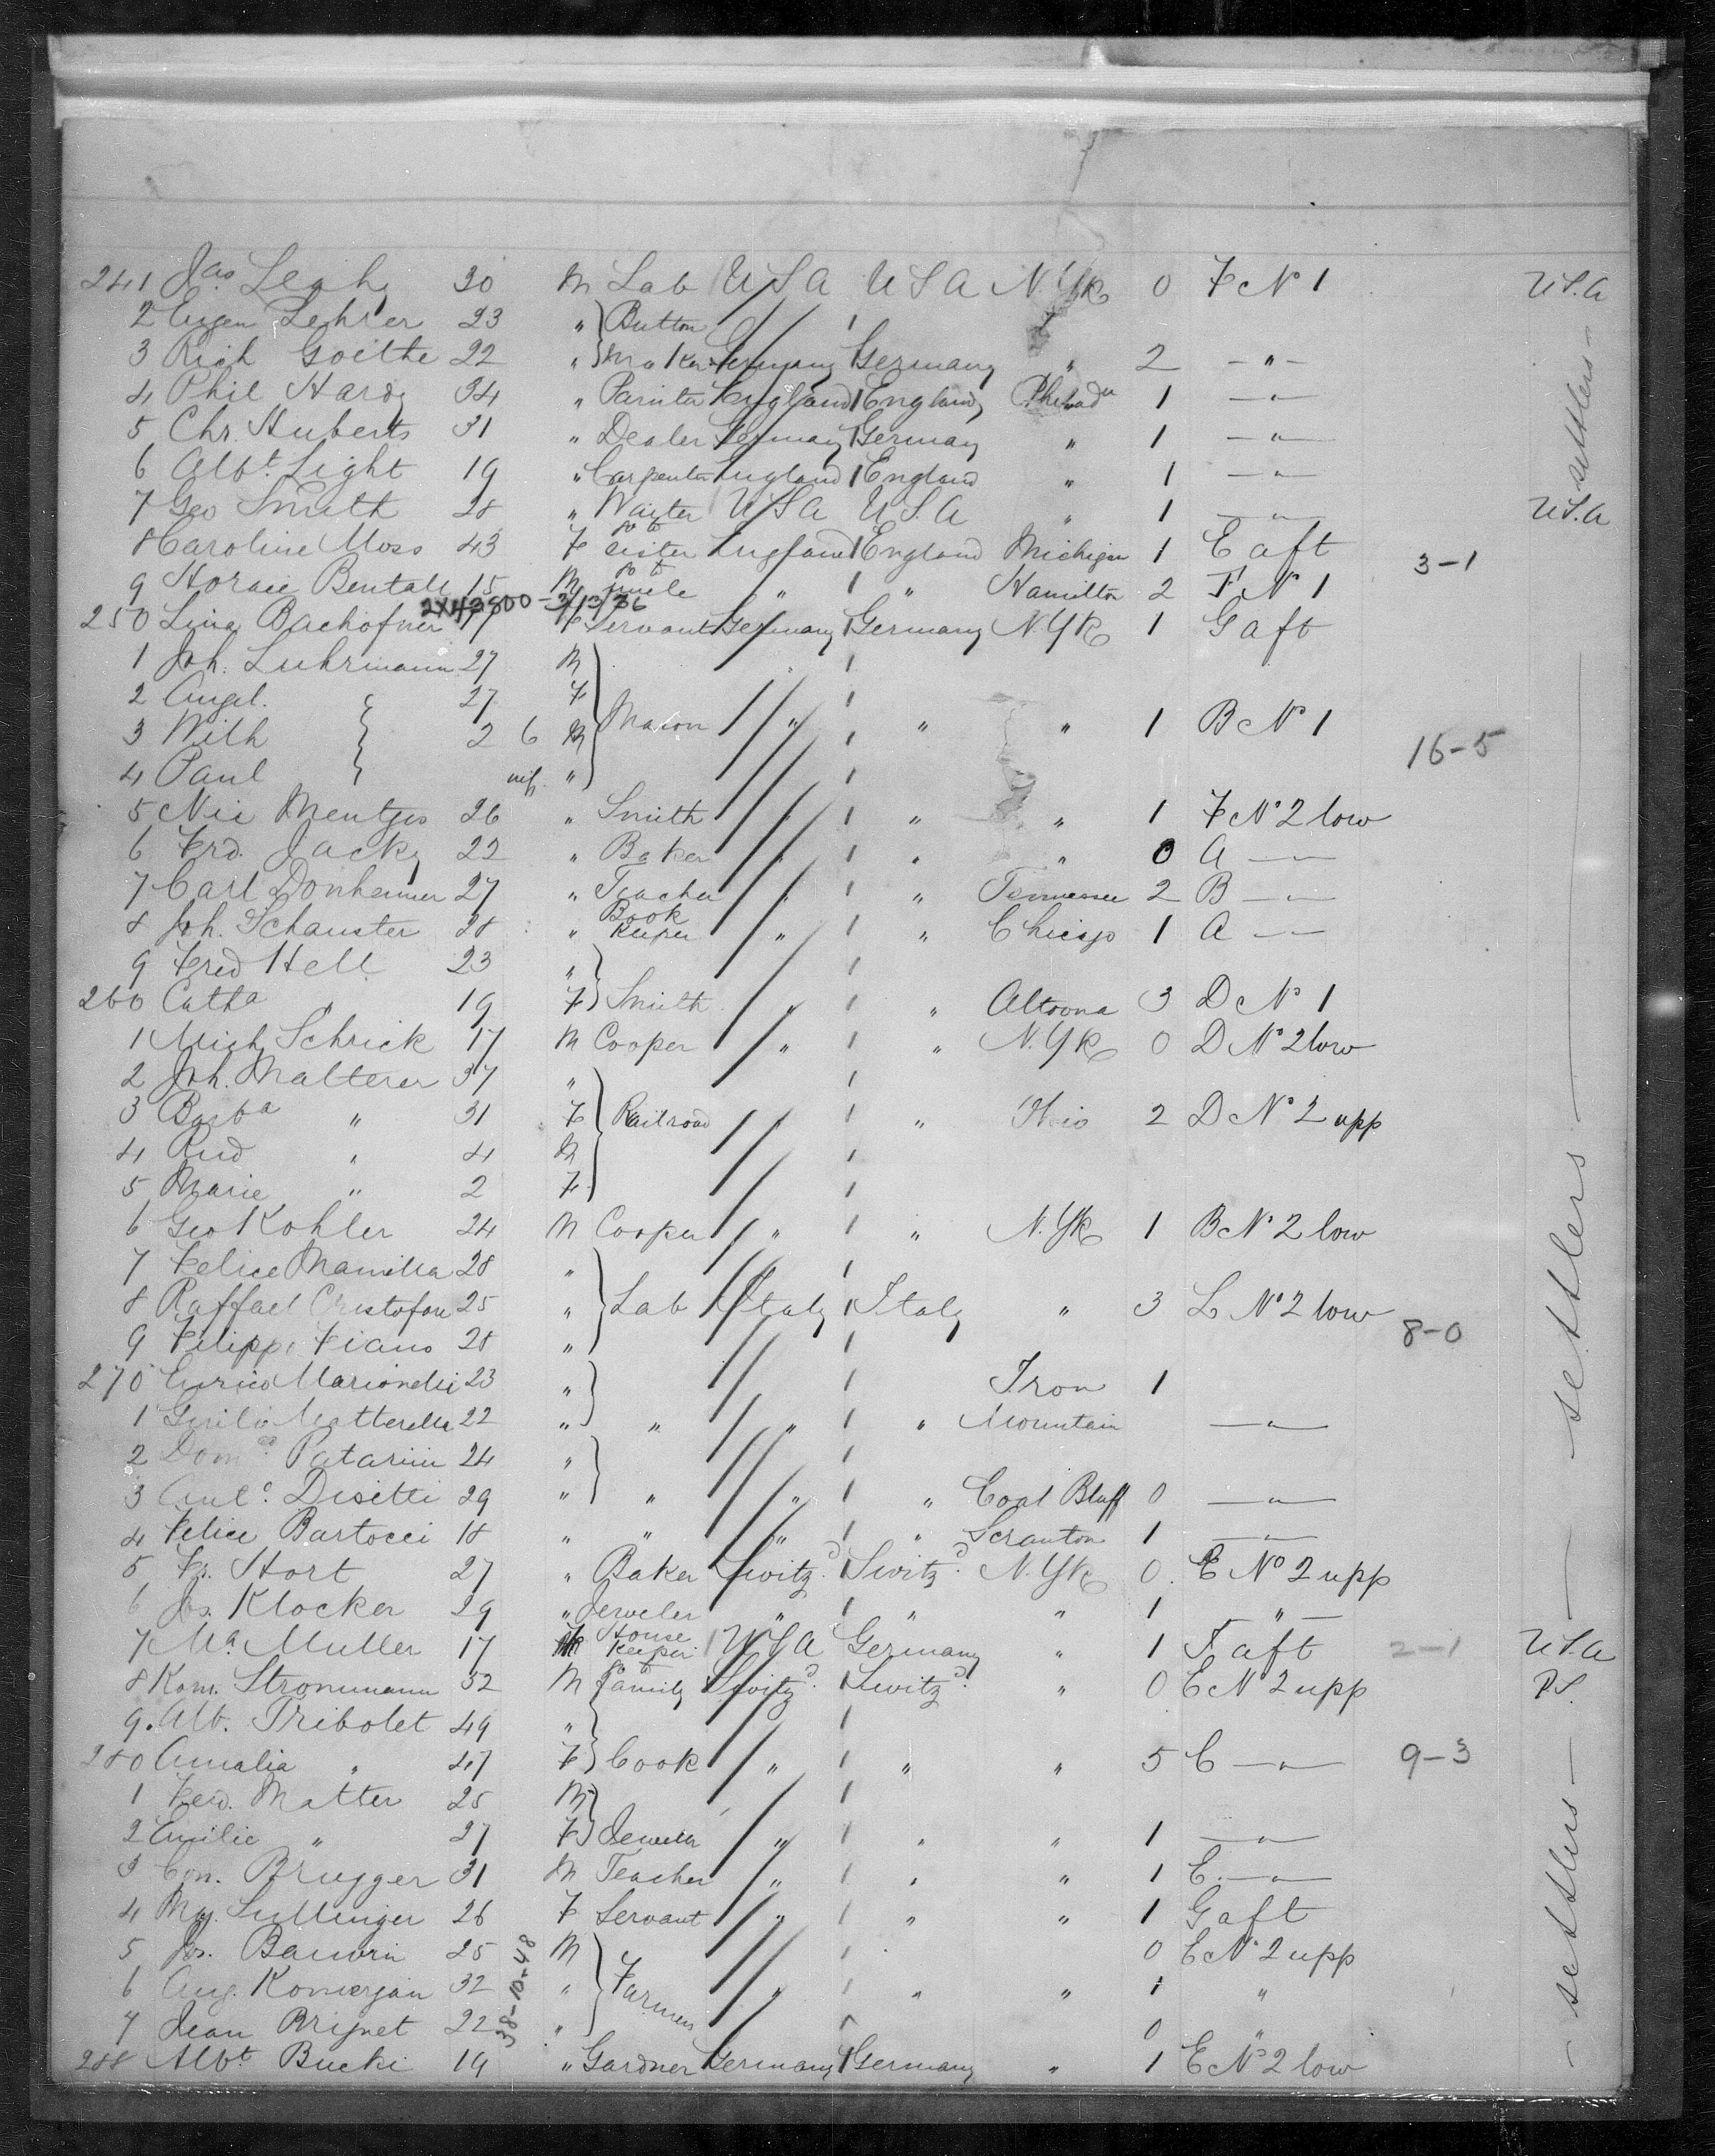 241 Jas Leahy 30 M Lab U S A U S A N. Yk 0 F No 1 U S. A
2 Eugen Lehrer 23 " Button
3 Rich Goethe 22 " Maker Germany Germany " 2 — " —
4 Phil Hardy 34 " Painter England England Philada 1 — " —
5 Chr. Huberts 31 " Dealer Germany Germany " 1 — " —
6 Albt. Light 19 " Carpenter England England " 1 — " —
7 Geo Smith 28 " Waiter U S A U S. A " 1 — " — U S. A
8 Caroline Moss 43 F to sister England England Michigan 1 E aft
3-1
9 Horace Bentall 15 M to uncle " " Hamilton 2 F No 1
2X43800-3/13/36
250 Lina Bachofner 17 F Servant Germany Germany N. Yk 1 G aft
1 Joh. Luhrmann 27 M
2 Angel. " 27 F
3 Wilh " 2 6 M Mason " " " 1 B No 1
16-5
4 Paul " inf. "
5 Nic Mentges 26 " Smith " " " 1 F No 2 low
6 Frd. Jacky 22 " Baker " " " 0 A — " —
7 Carl Donheimer 27 " Teacher " " Tennessee 2 B — " —
8 Joh. Schauster 28 " Book Keeper " " Chicago 1 A — " —
9 Fred Hell 23 "
260 Catha " 19 F Smith " " Altoona 3 D No 1
1 Mich Schrick 17 M Cooper " " N. Yk 0 D No 2 low
2 Joh. Malterer 37 "
3 Barba " 31 F Railroad " " Ohio 2 D No 2 upp
4 Rud " 4 M
5 Marie " 2 F
6 Geo Kohler 24 M Cooper " " N. Yk 1 B No 2 low
7 Felice Mamilla 28 "
8 Raffael Cristofore 25 " Lab Italy Italy " 3 L No 2 low
8-0
9 Filippo Fiano 28 "
270 Enrico 23 " Iron 1
1 22 " " " " Mountain — " —
2 Dom Patarini 24 "
3 Anto. Disetti 29 " " " " Coal Bluff 0 — " —
4 Felice Bartocci 18 " " " " Scranton 1 — " —
5 Fr. Hort 27 " Baker Switzd. Switzd. N. Yk 0 E No 2 upp
6 Jos. Klocker 29 " Jeweler " " " 1 — " —
7 Ma. Muller 17 House Keeper U S A Germany " 1 F aft 2-1 U S. A
8 Kom. Stronmann 52 M to family Switzd. Switzd. " 0 E No 2 upp P.S.
9 Alb. Tribolet 49 "
280 Amalia " 47 F Cook " " " 5 C — " — 9-3
1 Ferd. Matter 25 M
2 Emilie " 27 F Jeweler " " " 1 — " —
3 Con. Brugger 31 M Teacher " " " 1 E — " —
4 My. Sullinger 26 F Servant " " " 1 G aft
5 Jos. Bauwin 25 M 0 E No 2 upp
6 Aug. 32 " Farmers " " " 1 "
38-10-48
7 Jean Brignet 22 " 0 "
288 Albt Bucki 19 " Gardner Germany Germany " 1 E No 2 low
settlers —
— settlers —
— settlers —